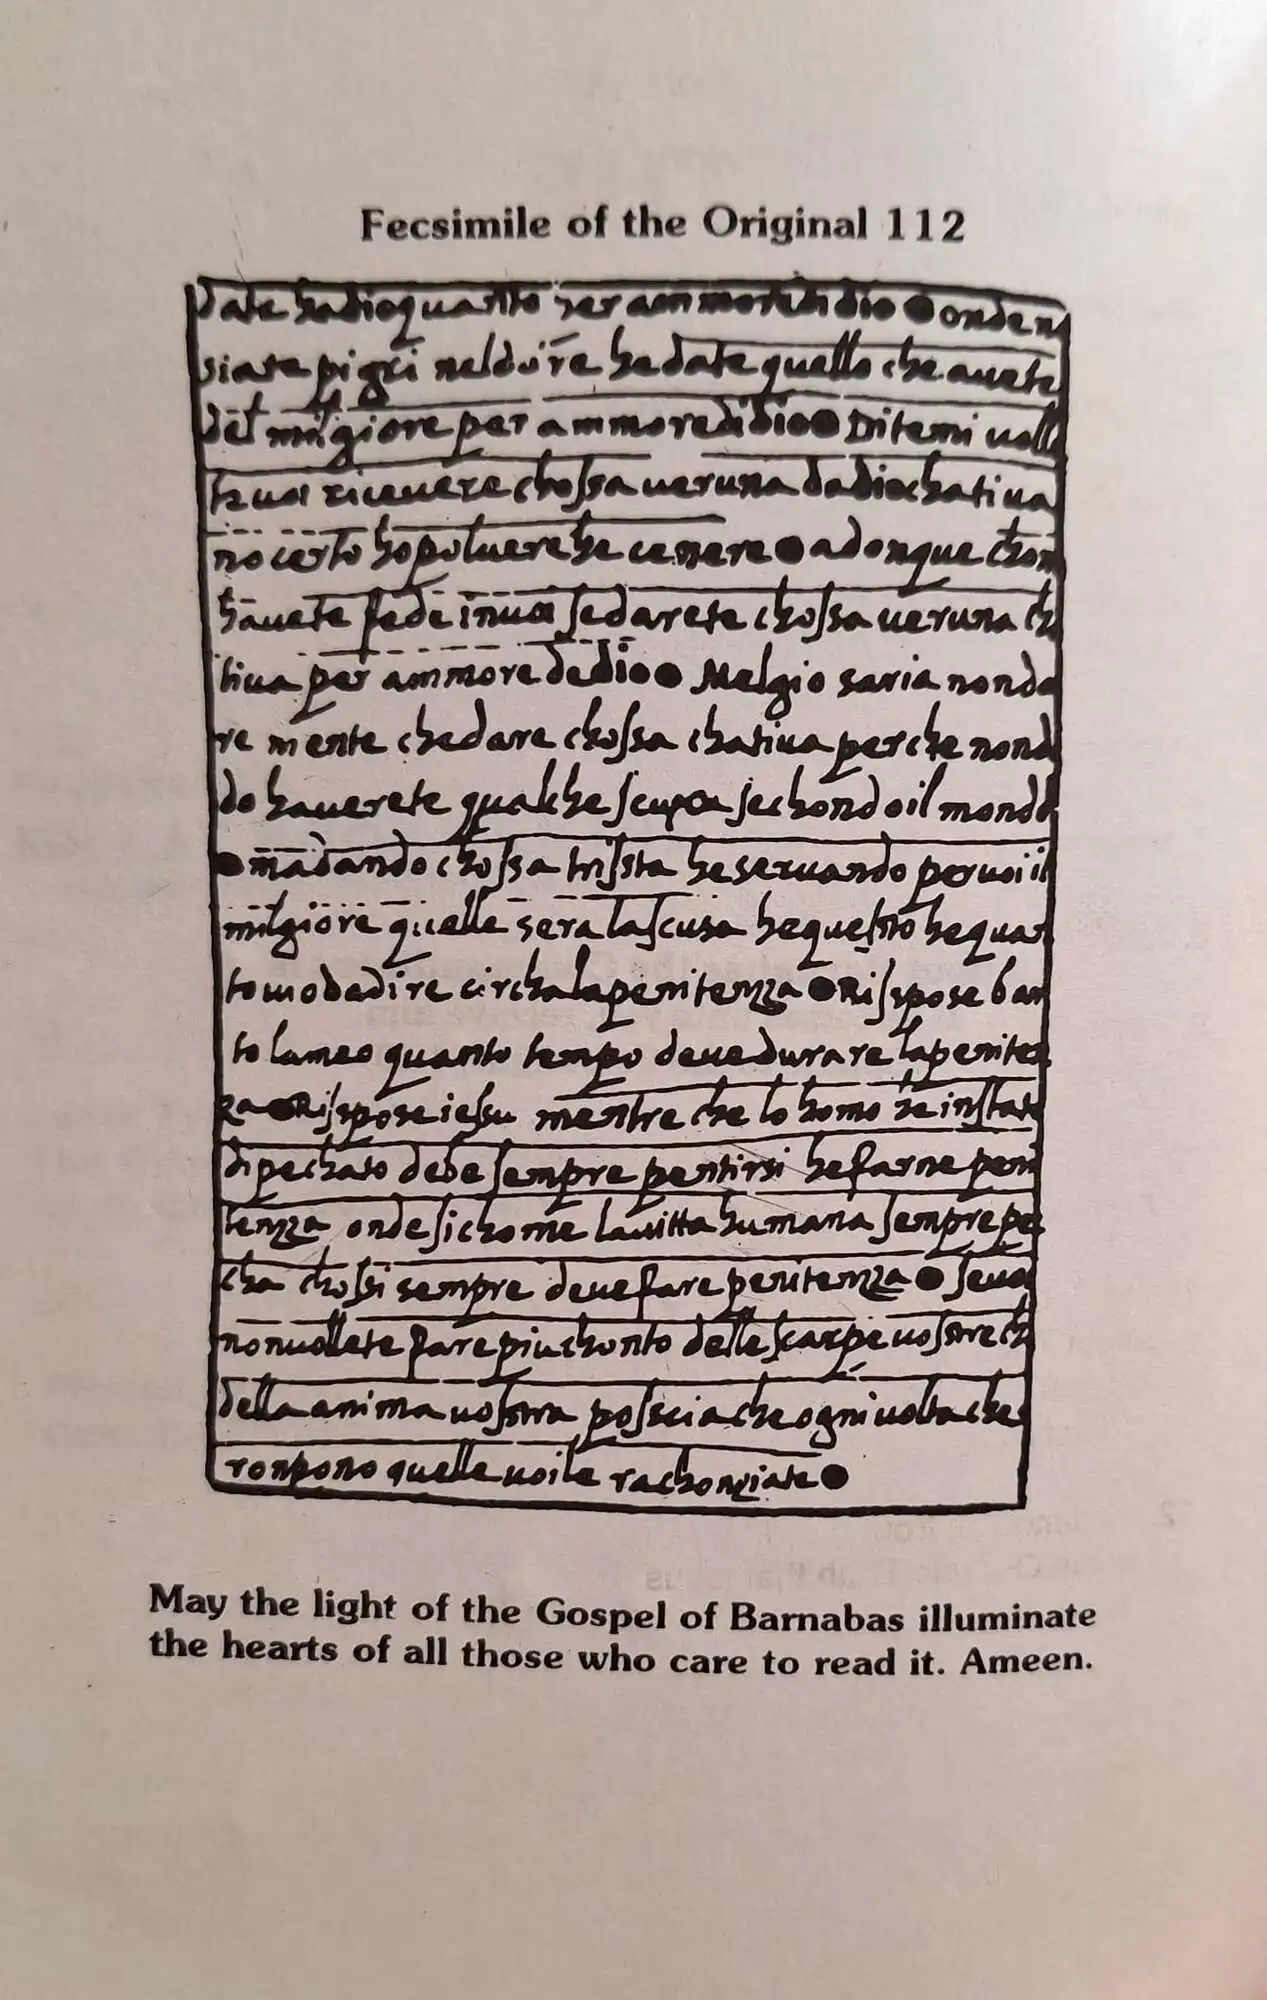 Fecsimile of the Original 112
date ha dio quanto per ammore di dio ● onde n
siate pigri nel dare he date quello che auete
del milgiore per ammore di dio ● Ditemi uolle
te uoi riceuere chossa ueruna da dio chatiua
no certo ho poluere he cenere ● adonque chom
hauete fede in uoi se darete chossa ueruna cha
tiua per ammore de dio ● Melgio saria non da
re niente che dare chossa chatiua perche non da
do hauerete qualche scusa sechondo il mondo
● ma dando chossa trissta he seruando per uoi il
milgiore quelle sera la scusa he quessto he quan
to uo da dire circha la penitenzza ● Risspose bar
to lameo quanto tempo deue durare la peniten
za ● Risspose iessu mentre che lo homo he in stato
di pechato debe sempre pentirsi he farne peni
tenzza onde sichome la uitta humana sempre pe
cha chossi sempre deue fare penitenzza ● se uoi
non uollete fare piu chonto delle scarpe uosstre che
della anima uosstra possciache ogni uolta che
ronpono quelle uoi le rachonziate ●
May the light of the Gospel of Barnabas illuminate
the hearts of all those who care to read it. Ameen.